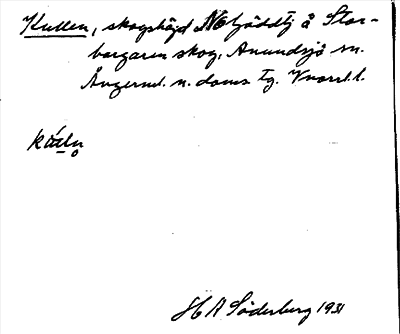 Kullen, skogshöjd NO Gäddtj å Stor-
borgaren skog, Anundsjö sn.
Ångerml. n. doms tg. Vnorrl. l.
H A Söderberg 1931